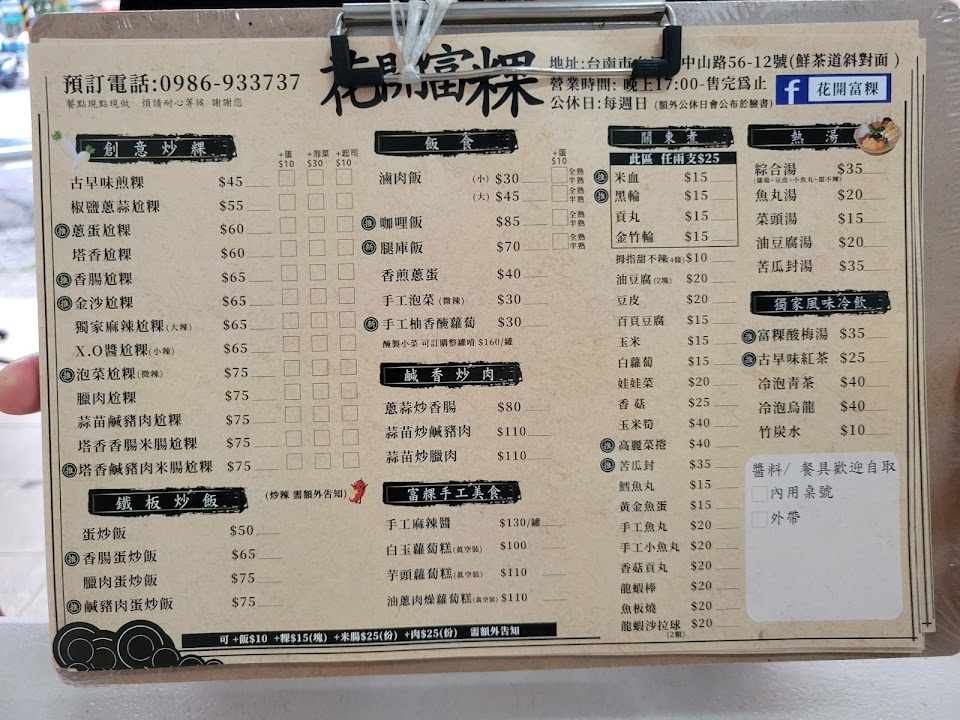 花開富粿
預訂電話:0986-933737
餐點現點現做 煩請耐心等候 謝謝您
地址:台南市 中山路56-12號(鮮茶道斜對面)
營業時間: 晚上17:00-售完為止
公休日:每週日 (額外公休日會公布於臉書)
f 花開富粿
創意炒粿
+蛋 $10 +泡菜 $30 +起司 $10
古早味煎粿 $45
椒鹽蔥蒜尬粿 $55
蔥蛋尬粿 $60
塔香尬粿 $60
香腸尬粿 $65
金沙尬粿 $65
獨家麻辣尬粿(大辣) $65
X.O醬尬粿(小辣) $65
泡菜尬粿(微辣) $75
臘肉尬粿 $75
蒜苗鹹豬肉尬粿 $75
塔香香腸米腸尬粿 $75
塔香鹹豬肉米腸尬粿 $75
鐵板炒飯
(炒辣 需額外告知)
蛋炒飯 $50
香腸蛋炒飯 $65
臘肉蛋炒飯 $75
鹹豬肉蛋炒飯 $75
飯食
+蛋 $10
滷肉飯 (小) $30 全熟 半熟
(大) $45
咖哩飯 $85 全熟 半熟
腿庫飯 $70 全熟 半熟
香煎蔥蛋 $40
手工泡菜(微辣) $30
手工柚香醃蘿蔔 $30
醃製小菜 可訂購整罐唷 $160/罐
鹹香炒肉
蔥蒜炒香腸 $80
蒜苗炒鹹豬肉 $110
蒜苗炒臘肉 $110
富粿手工美食
手工麻辣醬 $130/罐
白玉蘿蔔糕(真空裝) $100
芋頭蘿蔔糕(真空裝) $110
油蔥肉燥蘿蔔糕(真空裝) $110
可 +飯$10 +粿$15(塊) +米腸$25(份) +肉$25(份) 需額外告知
關東煮
此區 任兩支$25
米血 $15
黑輪 $15
貢丸 $15
金竹輪 $15
拇指甜不辣(4條) $10
油豆腐(2塊) $20
豆皮 $20
百頁豆腐 $15
玉米 $15
白蘿蔔 $15
娃娃菜 $20
香菇 $25
玉米筍 $40
高麗菜捲 $40
苦瓜封 $35
鱈魚丸 $15
黃金魚蛋 $15
手工魚丸 $20
手工小魚丸 $20
香菇貢丸 $20
龍蝦棒 $20
魚板燒 $20
龍蝦沙拉球 $20
(2顆)
熱湯
綜合湯 $35
(蘿蔔+豆皮+小魚丸+甜不辣)
魚丸湯 $20
菜頭湯 $15
油豆腐湯 $20
苦瓜封湯 $35
獨家風味冷飲
富粿酸梅湯 $35
古早味紅茶 $25
冷泡青茶 $40
冷泡烏龍 $40
竹炭水 $10
醬料/ 餐具歡迎自取
內用桌號
外帶